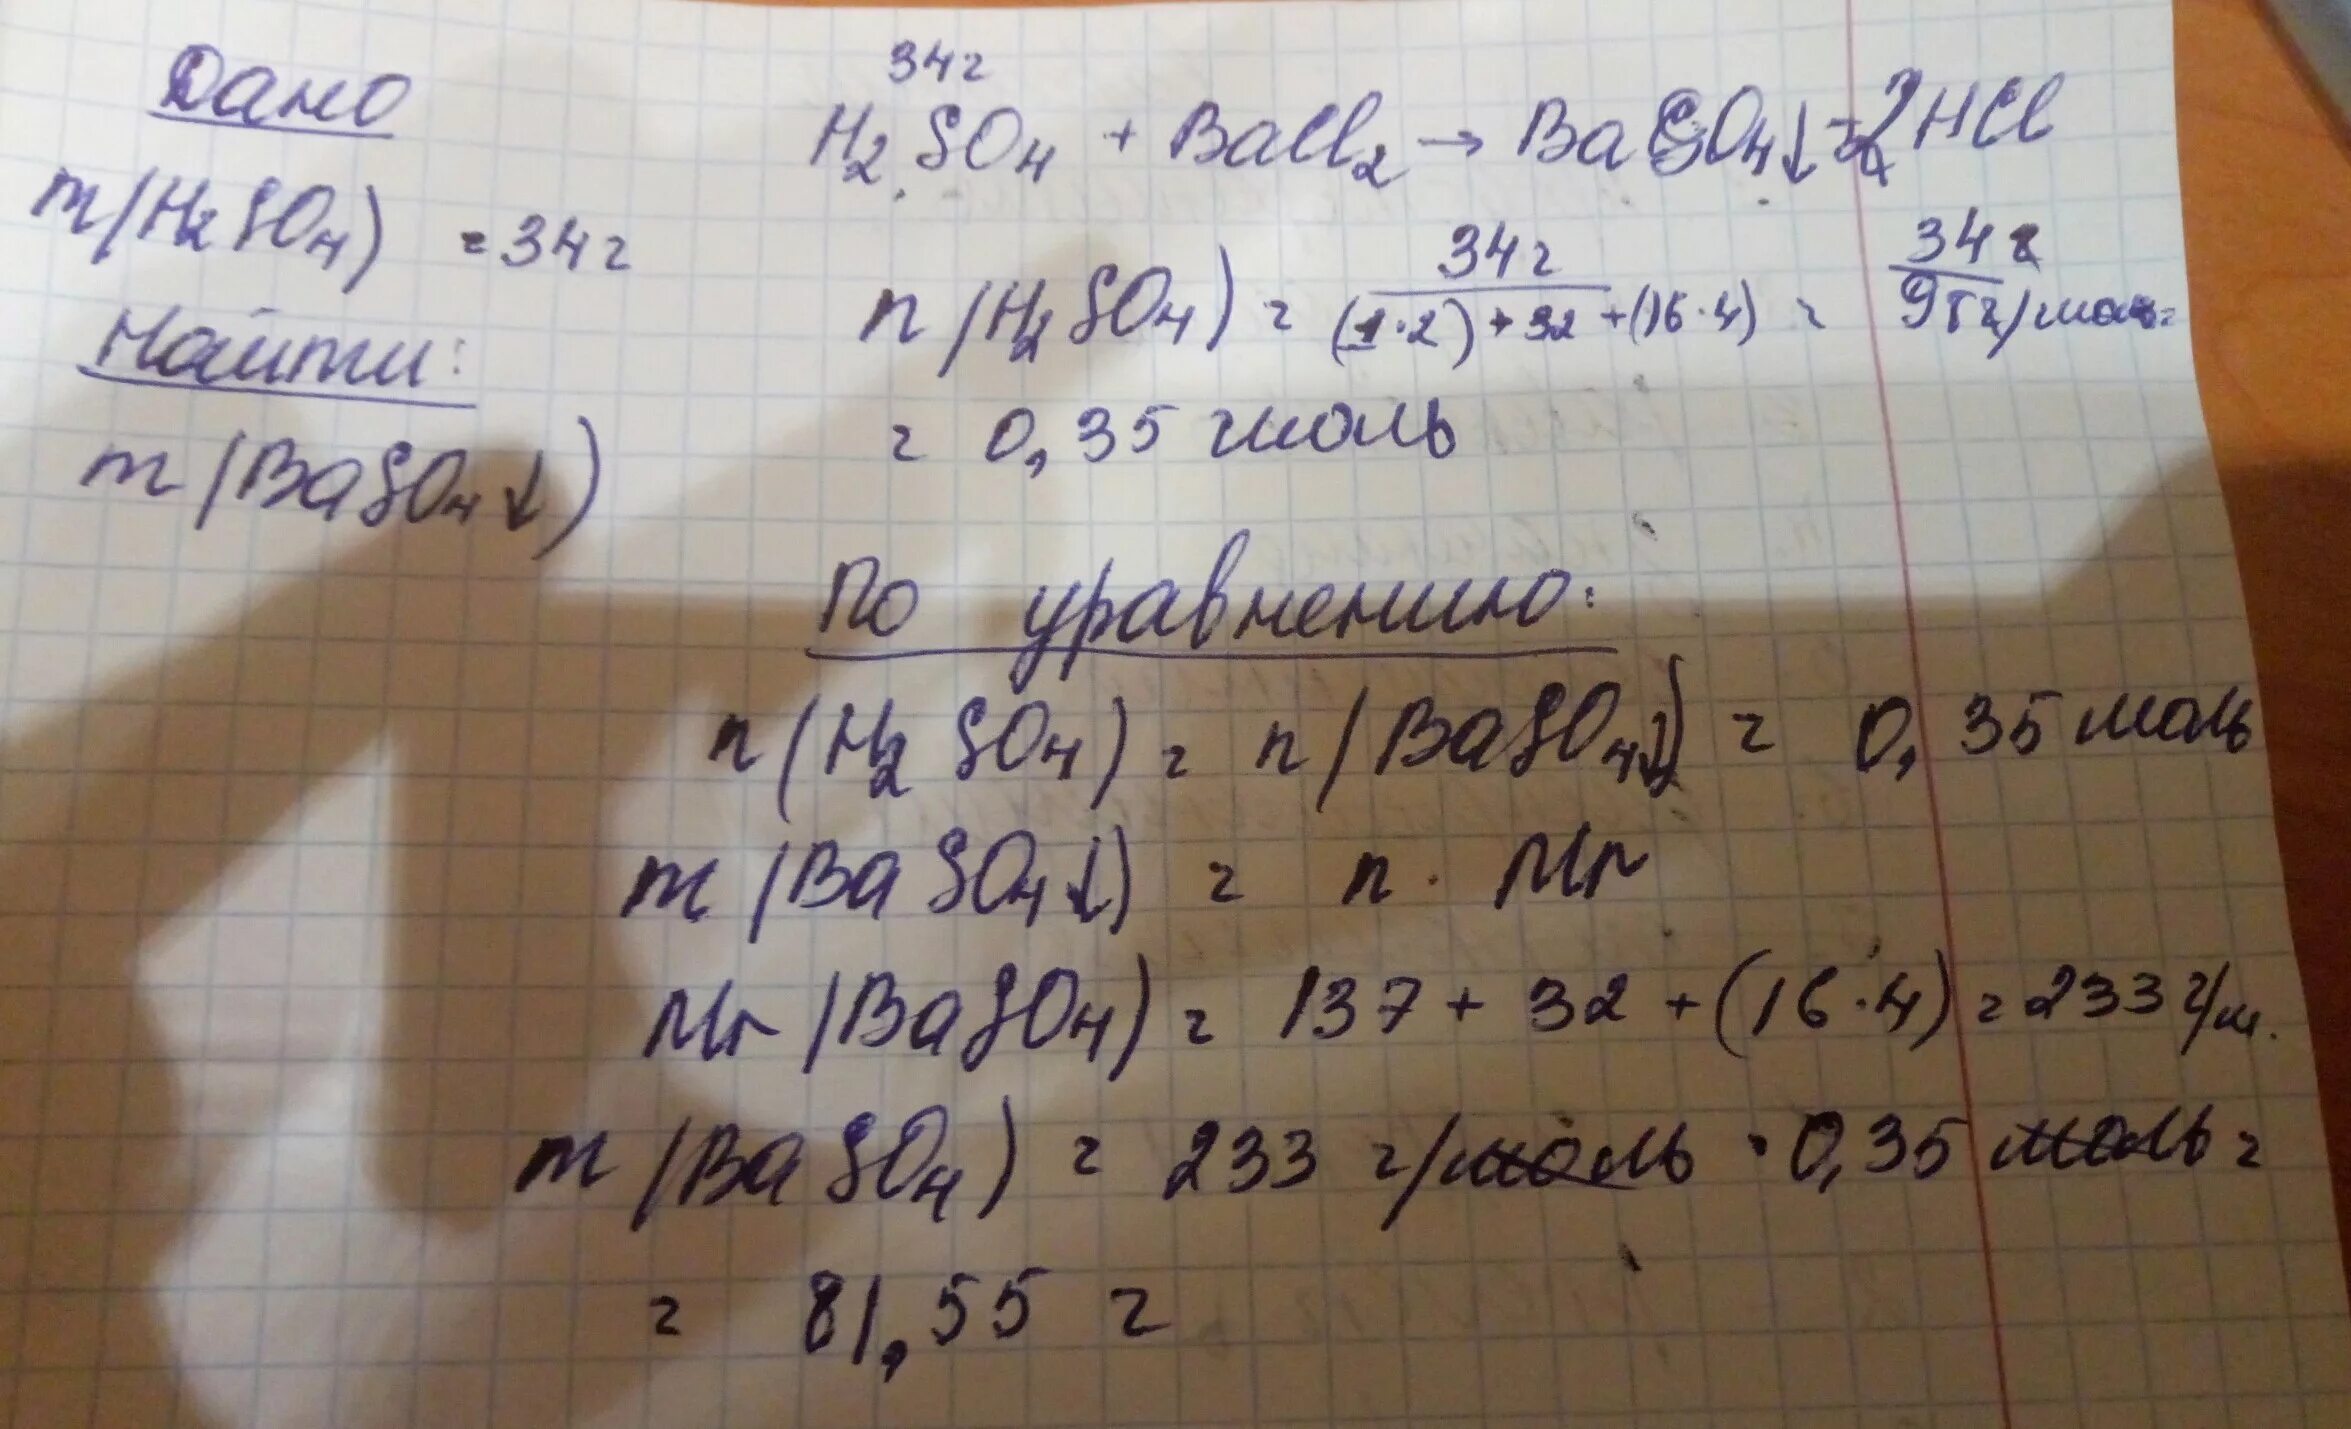 Дано
m(H₂SO₄) = 34г
Найти:
m(BaSO₄↓)
34г
H₂SO₄ + BaCl₂ → BaSO₄↓ + 2HCl
n(H₂SO₄) = 34г / (1·2)+32+(16·4) = 34г / 98г/моль =
= 0,35 моль
По уравнению:
n(H₂SO₄) = n(BaSO₄↓) = 0,35 моль
m(BaSO₄↓) = n · Mr
Mr(BaSO₄) = 137 + 32 + (16·4) = 233 г/м.
m(BaSO₄) = 233 г/моль · 0,35 моль =
= 81,55 г